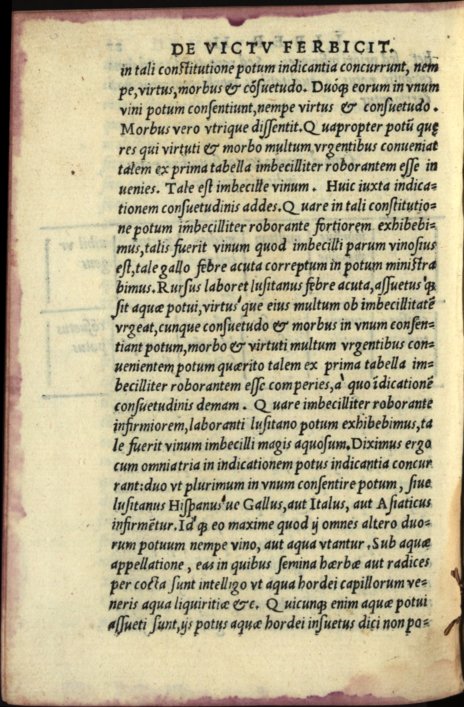 DE VICTV FERBICIT.
in tali constitutione potum indicantia concurrunt, nem
pe, virtus, morbus & cõsuetudo. Duóq; eorum in vnum
vini potum consentiunt, nempe virtus & consuetudo.
Morbus vero vtrique dissentit. Quapropter potũ quę
res qui virtuti & morbo multum vrgentibus conueniat
talem ex prima tabella imbecilliter roborantem esse in
uenies. Tale est imbecille vinum. Huic iuxta indica=
tionem consuetudinis addes. Quare in tali constitutio=
ne potum imbecilliter roborante fortiorem exhibebi=
mus, talis fuerit vinum quod imbecilli parum vinosius
est, tale gallo febre acuta correptum in potum ministra
bimus. Rursus laboret lusitanus febre acuta, assuetus q;
sit aquæ potui, virtus que eius multum ob imbecillitatẽ
vrgeat, cunque consuetudo & morbus in vnum consen=
tiant potum, morbo & virtuti multum vrgentibus con=
uenientem potum quærito talem ex prima tabella im=
becilliter roborantem esse comperies, à quo ĩdicationẽ
consuetudinis demam. Quare imbecilliter roborante
infirmiorem, laboranti lusitano potum exhibebimus, ta
le fuerit vinum imbecilli magis aquosum. Diximus ergo
cum omnia tria in indicationem potus indicantia concur
rant: duo vt plurimum in vnum consentire potum, siue
lusitanus Hispanus ue Gallus, aut Italus, aut Asiaticus
infirmẽtur. Id q; eo maxime quod ij omnes altero duo=
rum potuum nempe vino, aut aqua vtantur. Sub aquæ
appellatione, eas in quibus semina hærbæ aut radices
per cocta sunt intelligo vt aqua hordei capillorum ve=
neris aqua liquiritiæ &c. Quicunq; enim aquæ potui
assueti sunt, ijs potus aquæ hordei insuetus dici non po=